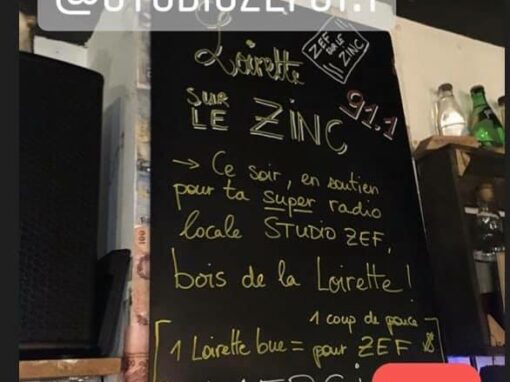 @STUDIOZEF91.1
Loirette
ZEF
SUR LE
ZINC
SUR
LE ZINC
91.1
→ Ce soir, en soutien
pour ta super radio
locale STUDIO ZEF,
bois de la Loirette !
1 coup de pouce
1 Loirette bue = pour ZEF
MERCI